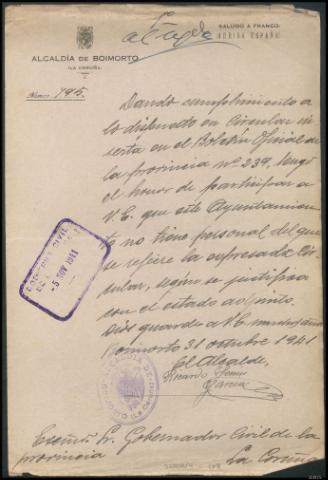 SALUDO A FRANCO:
¡ARRIBA ESPAÑA!
ALCALDÍA DE BOIMORTO
(LA CORUÑA)
Núm. 795.
Dando cumplimiento a
lo dispuesto en Circular in
serta en el Boletín Oficial de
la provincia nº 239, tengo
el honor de participar a
V.E. que este Ayuntamien
to no tiene personal del que
se refiere la expresada Cir
cular, según se justifica
con el estado adjunto.
Dios guarde a V.E. muchos años
Boimorto 31 octubre 1941
El Alcalde,
Ricardo
García
GOBIERNO CIVIL
5 NOV 1941
Excmo. Sr. Gobernador Civil de la
provincia
La Coruña